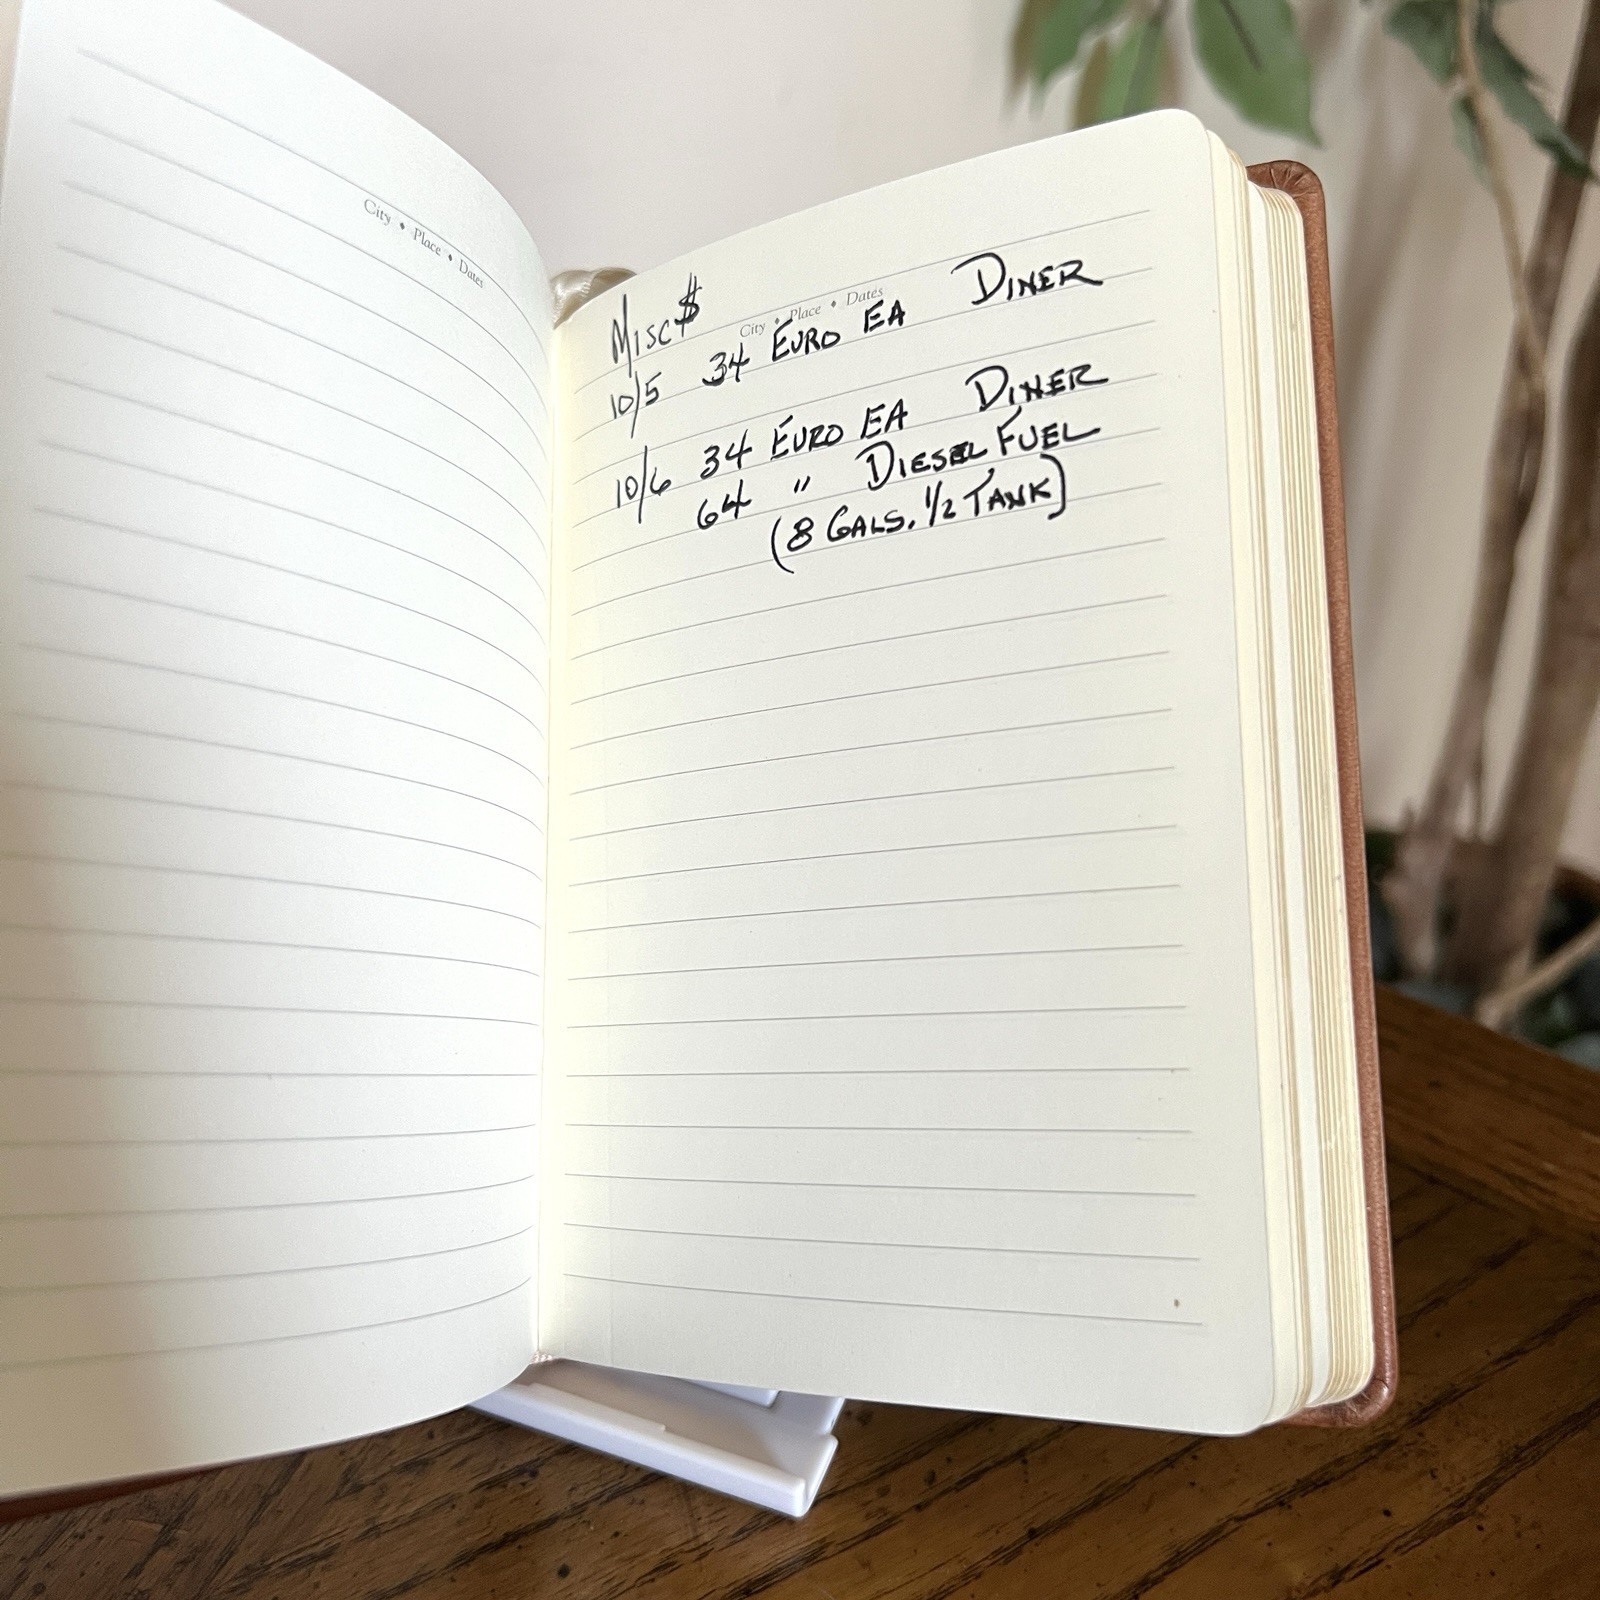 City • Place • Dates
Misc $
City • Place • Dates
10/5 34 EURO EA DINER
10/6 34 EURO EA DINER
64 " DIESEL FUEL
(8 GALS. 1/2 TANK)